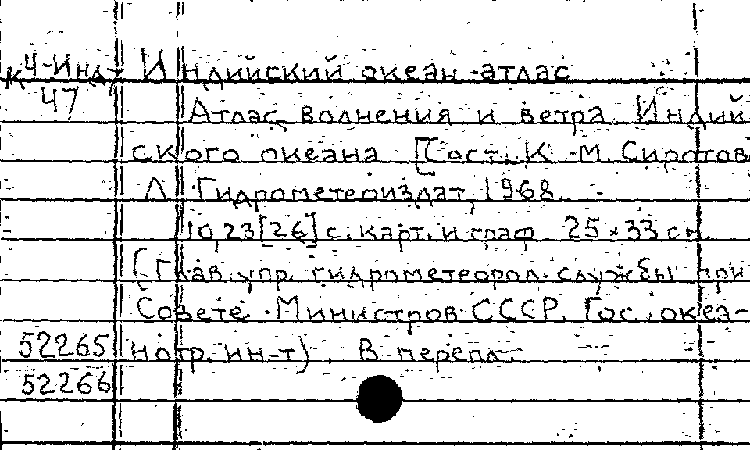 К4-Инд Индийский океан-атлас
47 Атлас волнения и ветра Индий
ского океана [Сост. К.-М. Сиротов
Л. Гидрометеоиздат, 1968
10,23[26] с. карт. и граф 25×33 см
(Глав. упр. гидрометеорол. службы при
Совете Министров СССР. Гос. океа-
52265 ногр. ин-т). В перепл.
52266